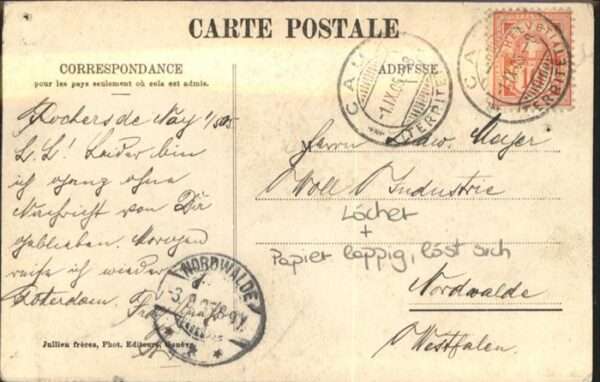 CARTE POSTALE
CORRESPONDANCE
pour les pays seulement où cela est admis.
ADRESSE
HELVETIA
Rochers de Nay 1/9 05
L. L! Leider bin
ich ganz ohne
Nachricht von Dir
geblieben. Morgen
reise ich wieder
Rotterdam.
M Herrn Ludw. Meyer
Woll Industrie
Löcher
+
Papier lappig, löst sich
Nordwalde
Westfalen.
NORDWALDE
Jullien frères, Phot. Editeurs, Genève